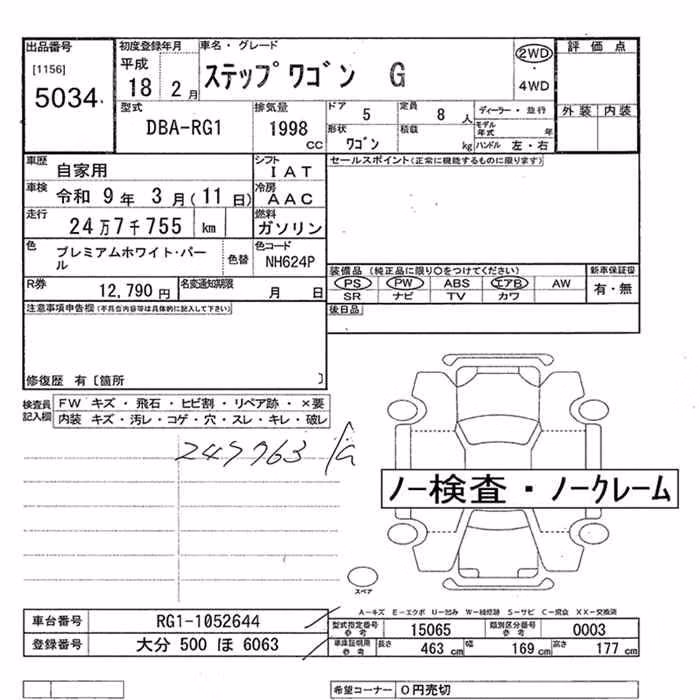 出品番号
[1156]
5034
初度登録年月
平成
18 2 月
車名・グレード
ステップワゴン G
2WD
4WD
評価点
外装 内装
型式
DBA-RG1
排気量
1998
CC
ドア
5
定員
8 人
形状
ワゴン
積載
kg
ディーラー・並行
モデル年式 年
ハンドル 左・右
車歴
自家用
シフト
IAT
車検
令和 9 年 3 月(11 日)
冷房
AAC
走行
24万7千755 km
燃料
ガソリン
色
プレミアムホワイト・パール
色替
色コード
NH624P
R券
12,790 円
名変通知期限
月 日
セールスポイント(正常に機能するものに限ります)
装備品(純正品に限り○をつけてください)
新車保証書
PS PW ABS エアB AW
SR ナビ TV カワ
有・無
後日品
注意事項申告欄(不具合内容等は具体的に記入して下さい)
修復歴 有〔箇所 〕
検査員記入欄
FW キズ・飛石・ヒビ割・リペア跡・×要
内装 キズ・汚レ・コゲ・穴・スレ・キレ・破レ
ノー検査・ノークレーム
スペア
A-キズ E-エクボ U-凹み W-補修跡 S-サビ C-腐食 XX-交換済
車台番号
RG1-1052644
登録番号
大分 500 ほ 6063
型式指定番号参考
15065
類別区分番号参考
0003
車庫証明用参考
長さ 463 cm 幅 169 cm 高さ 177 cm
希望コーナー
0円売切